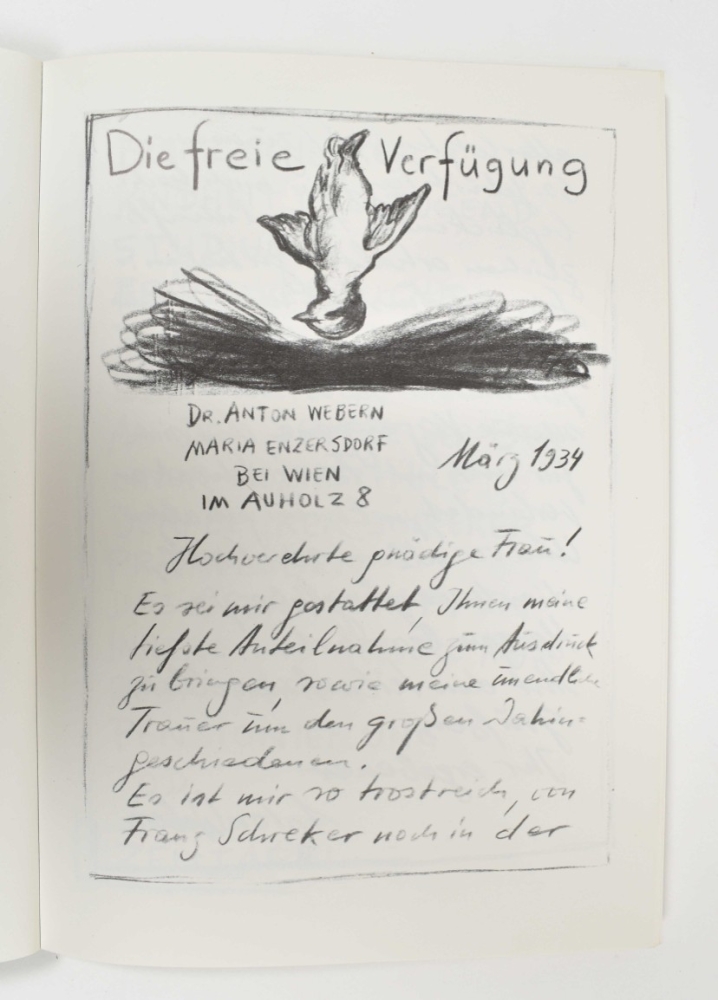 Die freie Verfügung
DR. ANTON WEBERN
MARIA ENZERSDORF
BEI WIEN
IM AUHOLZ 8
März 1934
Hochverehrte gnädige Frau!
Es sei mir gestattet, Ihnen meine
tiefste Anteilnahme zum Ausdruck
zu bringen, sowie meine unendliche
Trauer um den großen Dahin=
geschiedenen.
Es ist mir so trostreich, von
Franz Schreker noch in der